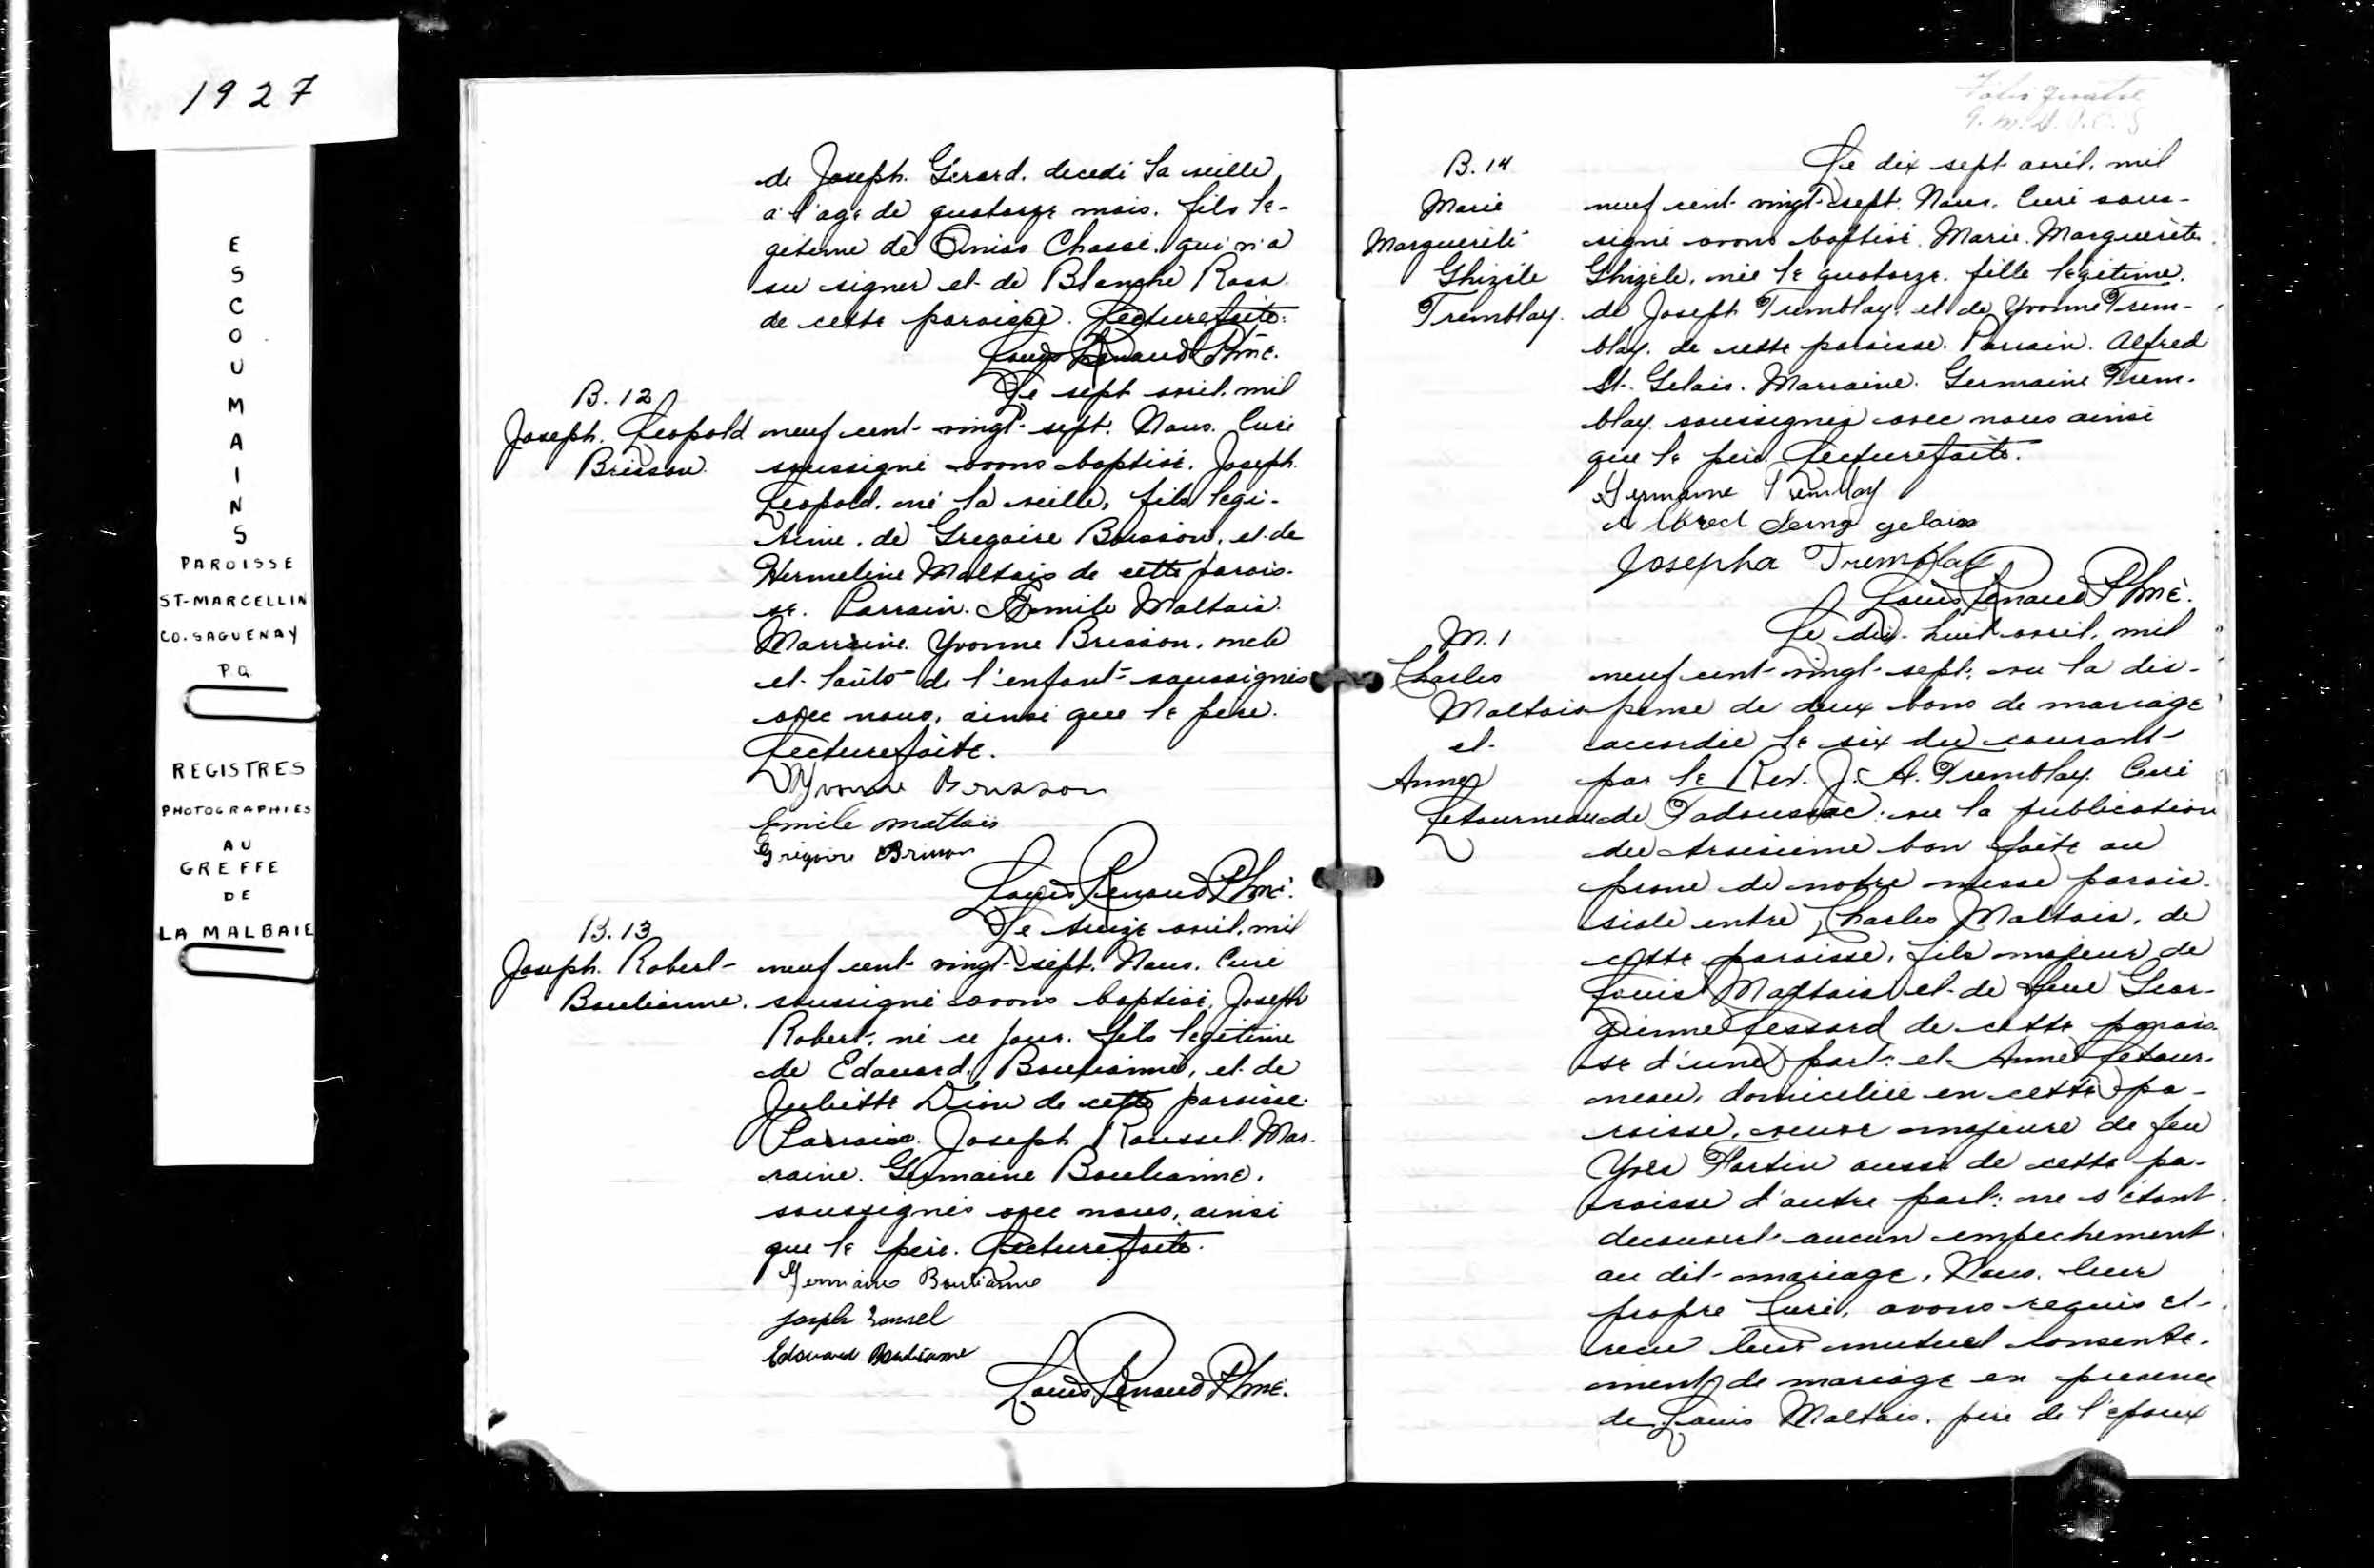 1927
ESCOUMAINS
PAROISSE
ST-MARCELLIN
CO. SAGUENAY
P.Q.
REGISTRES
PHOTOGRAPHIES
AU
GREFFE
DE
LA MALBAIE
de Joseph. Gérard. decedi la veille
à l'age de quatorze mois. fils le-
gitime de Onias Chassé. qui n'a
su signer et de Blanche Ross.
de cette paroisse. Lecture faite.
Louis Renaud Ptre.
B. 12
Joseph. Leopold
Brisson.
Le sept avril. mil
neuf cent vingt-sept. Nous. Curé
soussigné avons baptisé. Joseph.
Leopold. né la veille, fils legi-
time. de Gregoire Brisson, et de
Hermeline Maltais de cette parois-
se. Parrain. Emile Maltais.
Marraine. Yvonne Brisson. oncle
et tante de l'enfant soussignés
avec nous, ainsi que le père.
Lecture faite.
Yvonne Brisson
Emile Maltais
Grégoire Brisson
Louis Renaud Ptre.
B. 13
Joseph. Robert-
Boulianne.
Le treize avril. mil
neuf cent vingt-sept. Nous. Curé
soussigné avons baptisé, Joseph
Robert, né ce jour. fils legitime
de Edouard. Boulianne, et de
Juliette Dion de cette paroisse.
Parrain. Joseph Roussel. Mar-
raine. Germaine Boulianne.
soussignés avec nous, ainsi
que le père. Lecture faite.
Germaine Boulianne
Joseph Roussel
Edouard Boulianne
Louis Renaud Ptre.
Folio quatre
B. 14
Marie
Marguerite
Ghizile
Tremblay.
Le dix sept avril. mil
neuf cent vingt-sept. Nous. Curé sous-
signé avons baptisé. Marie. Marguerite.
Ghizele. née le quatorze. fille legitime.
de Joseph Tremblay. et de Yvonne Trem-
blay. de cette paroisse. Parrain. Alfred
St. Gelais. Marraine. Germaine Trem-
blay. soussignés avec nous ainsi
que le père. Lecture faite.
Germaine Tremblay
Alfred Seing gelais
Josepha Tremblay
Louis Renaud Ptre.
M. 1
Charles
Maltais
et
Anne
Letourneau
Le dix-huit avril. mil
neuf cent vingt-sept. vu la dis-
pense de deux bans de mariage
accordée le six du courant
par le Rev. J. A. Tremblay. Curé
de Tadoussac: vu la publication
du troisieme ban faite au
prone de notre messe parois-
siale entre Charles Maltais, de
cette paroisse, fils majeur de
Louis Maltais et de feue Geor-
gienne Lessard de cette parois-
se d'une part: et Anne Letour-
neau, domiciliée en cette pa-
roisse, veuve majeure de feu
Yves Fortin aussi de cette pa-
roisse d'autre part: ne s'etant
decouvert aucun empechement
au dit mariage. Nous, leur
propre Curé, avons requis et
recu leur mutuel consente-
ment de mariage en presence
de Louis Maltais. père de l'epoux